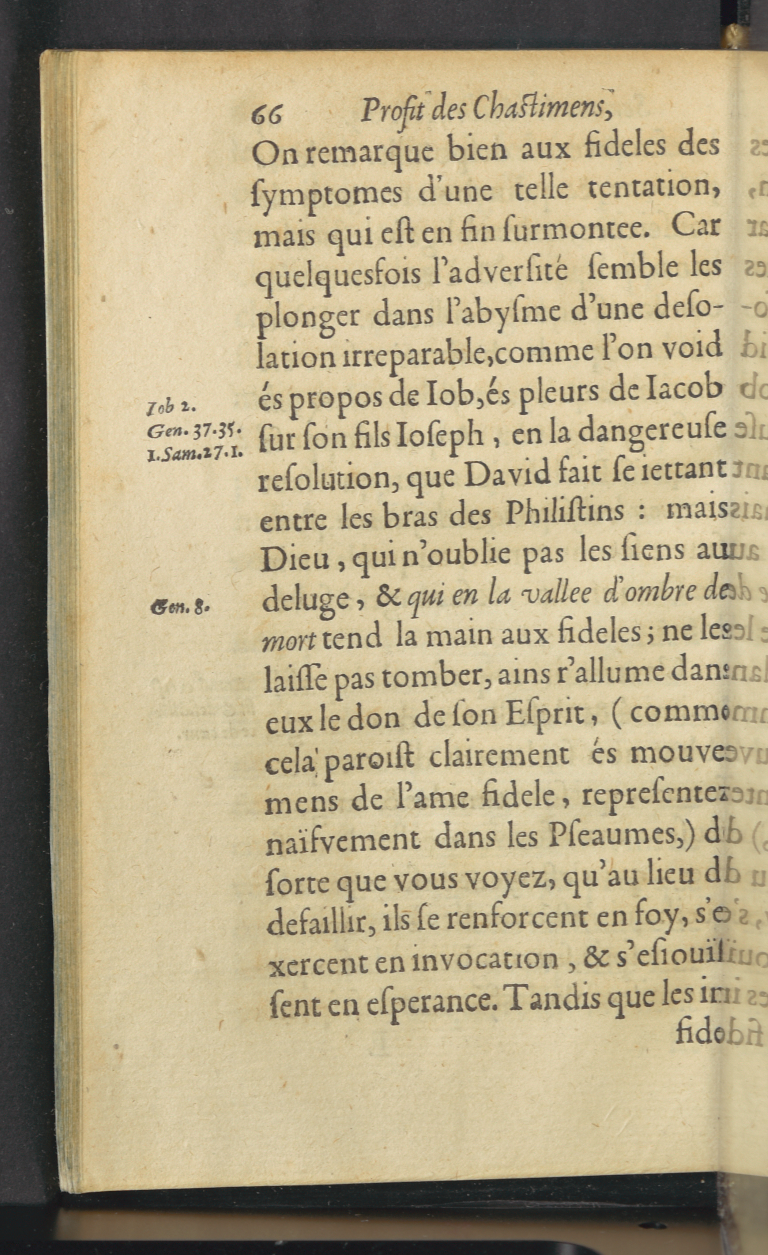 66 Profit des Chaſtimens,
On remarque bien aux fideles des
ſymptomes d'une telle tentation,
mais qui eſt en fin ſurmontee. Car
quelquesfois l'adverſité ſemble les
plonger dans l'abyſme d'une deſo-
lation irreparable, comme l'on void
és propos de Iob, és pleurs de Iacob
Iob 2.
Gen. 37.35.
1.Sam.27.1.
ſur ſon fils Ioſeph, en la dangereuſe
reſolution, que David fait ſe iettant
entre les bras des Philiſtins : mais
Dieu, qui n'oublie pas les ſiens au
Gen. 8.
deluge, & qui en la vallee d'ombre de
mort tend la main aux fideles; ne les
laiſſe pas tomber, ains r'allume dans
eux le don de ſon Eſprit, (comme
cela paroiſt clairement és mouve
mens de l'ame fidele, repreſentez
naïfvement dans les Pſeaumes,) d
ſorte que vous voyez, qu'au lieu d
defaillir, ils ſe renforcent en foy, s'e
xercent en invocation, & s'eſiouiſ
ſent en eſperance. Tandis que les in
fide